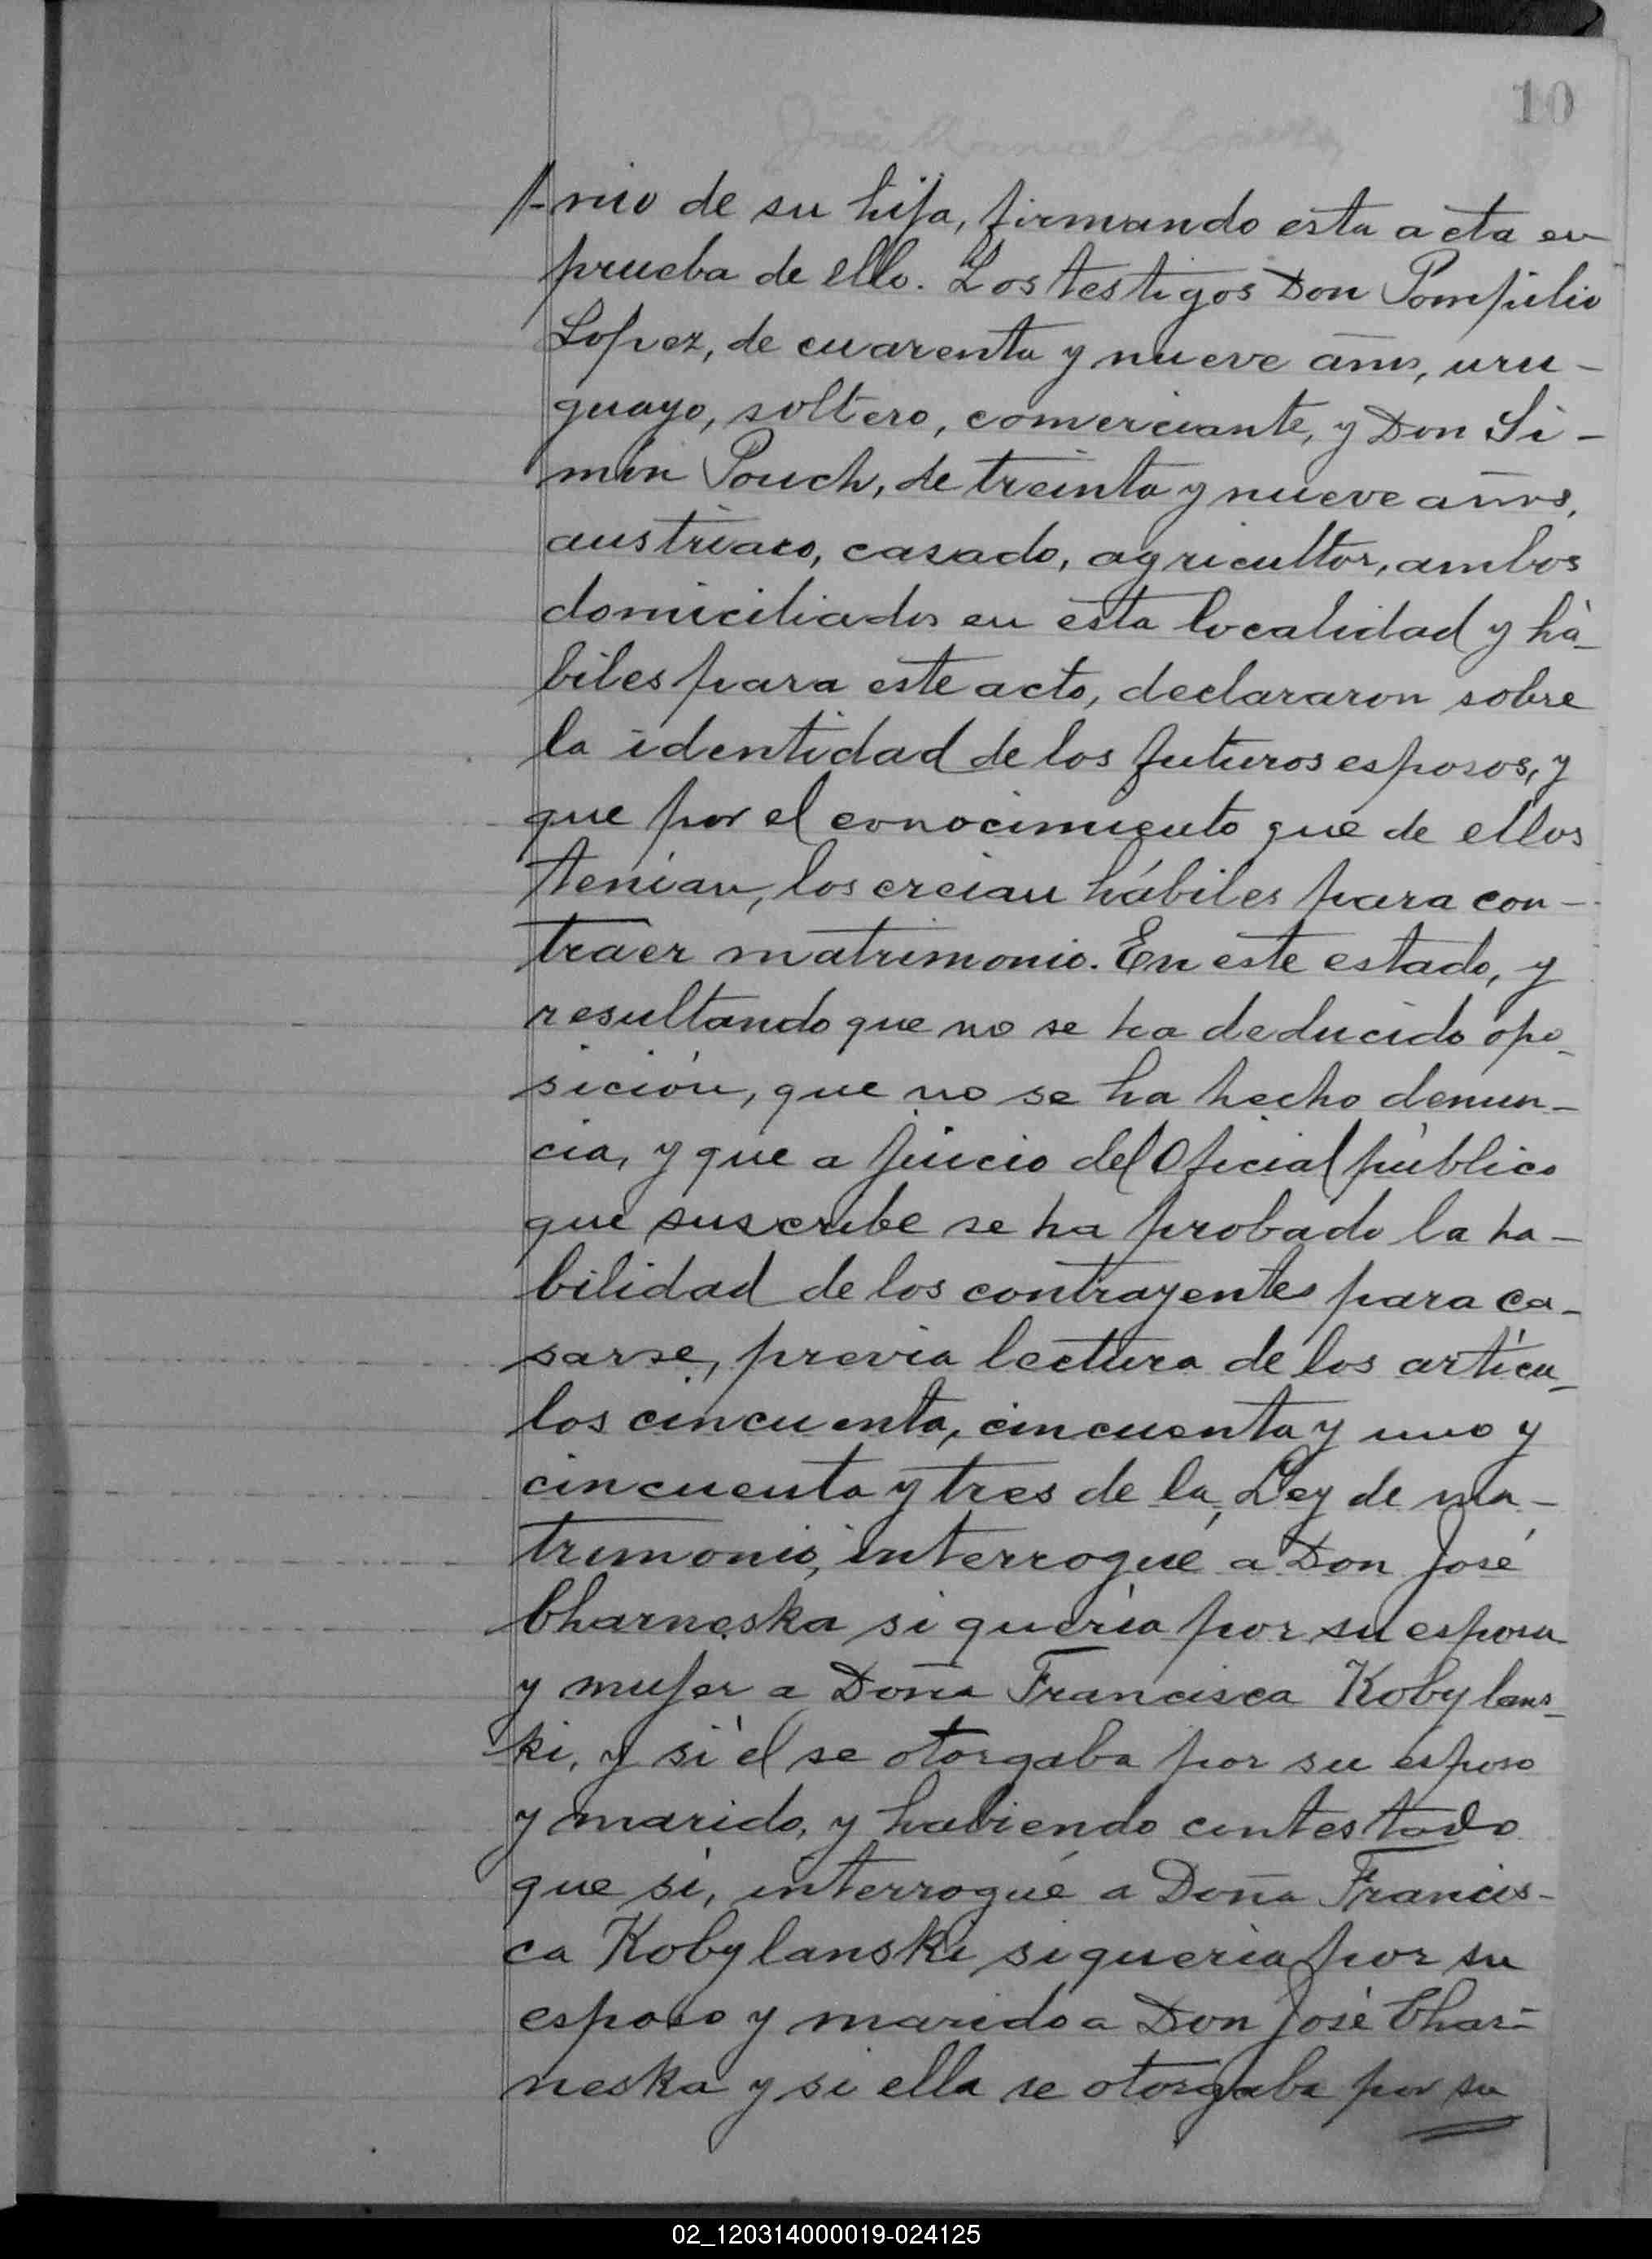 10
nio de su hija, firmando esta acta en
prueba de ello. Los testigos Don Pompilio
Lopez, de cuarenta y nueve años, uru-
guayo, soltero, comerciante, y Don Si-
món Pouch, de treinta y nueve años,
austriaco, casado, agricultor, ambos
domiciliados en esta localidad y há-
biles para este acto, declararon sobre
la identidad de los futuros esposos, y
que por el conocimiento que de ellos
tenian, los creian hábiles para con-
traer matrimonio. En este estado, y
resultando que no se ha deducido opo-
sición, que no se ha hecho denun-
cia, y que a juicio del Oficial público
que suscribe se ha probado la ha-
bilidad de los contrayentes para ca-
sarse, previa lectura de los articu-
los cincuenta, cincuenta y uno y
cincuenta y tres de la Ley de ma-
trimonio, interrogué a Don José
Charneska si queria por su esposa
y mujer a Doña Francisca Kobylans-
ki, y si él se otorgaba por su esposo
y marido, y habiendo contestado
que si, interrogué a Doña Francis-
ca Kobylanski si queria por su
esposo y marido a Don José Char-
neska y si ella se otorgaba por su
02_120314000019-024125